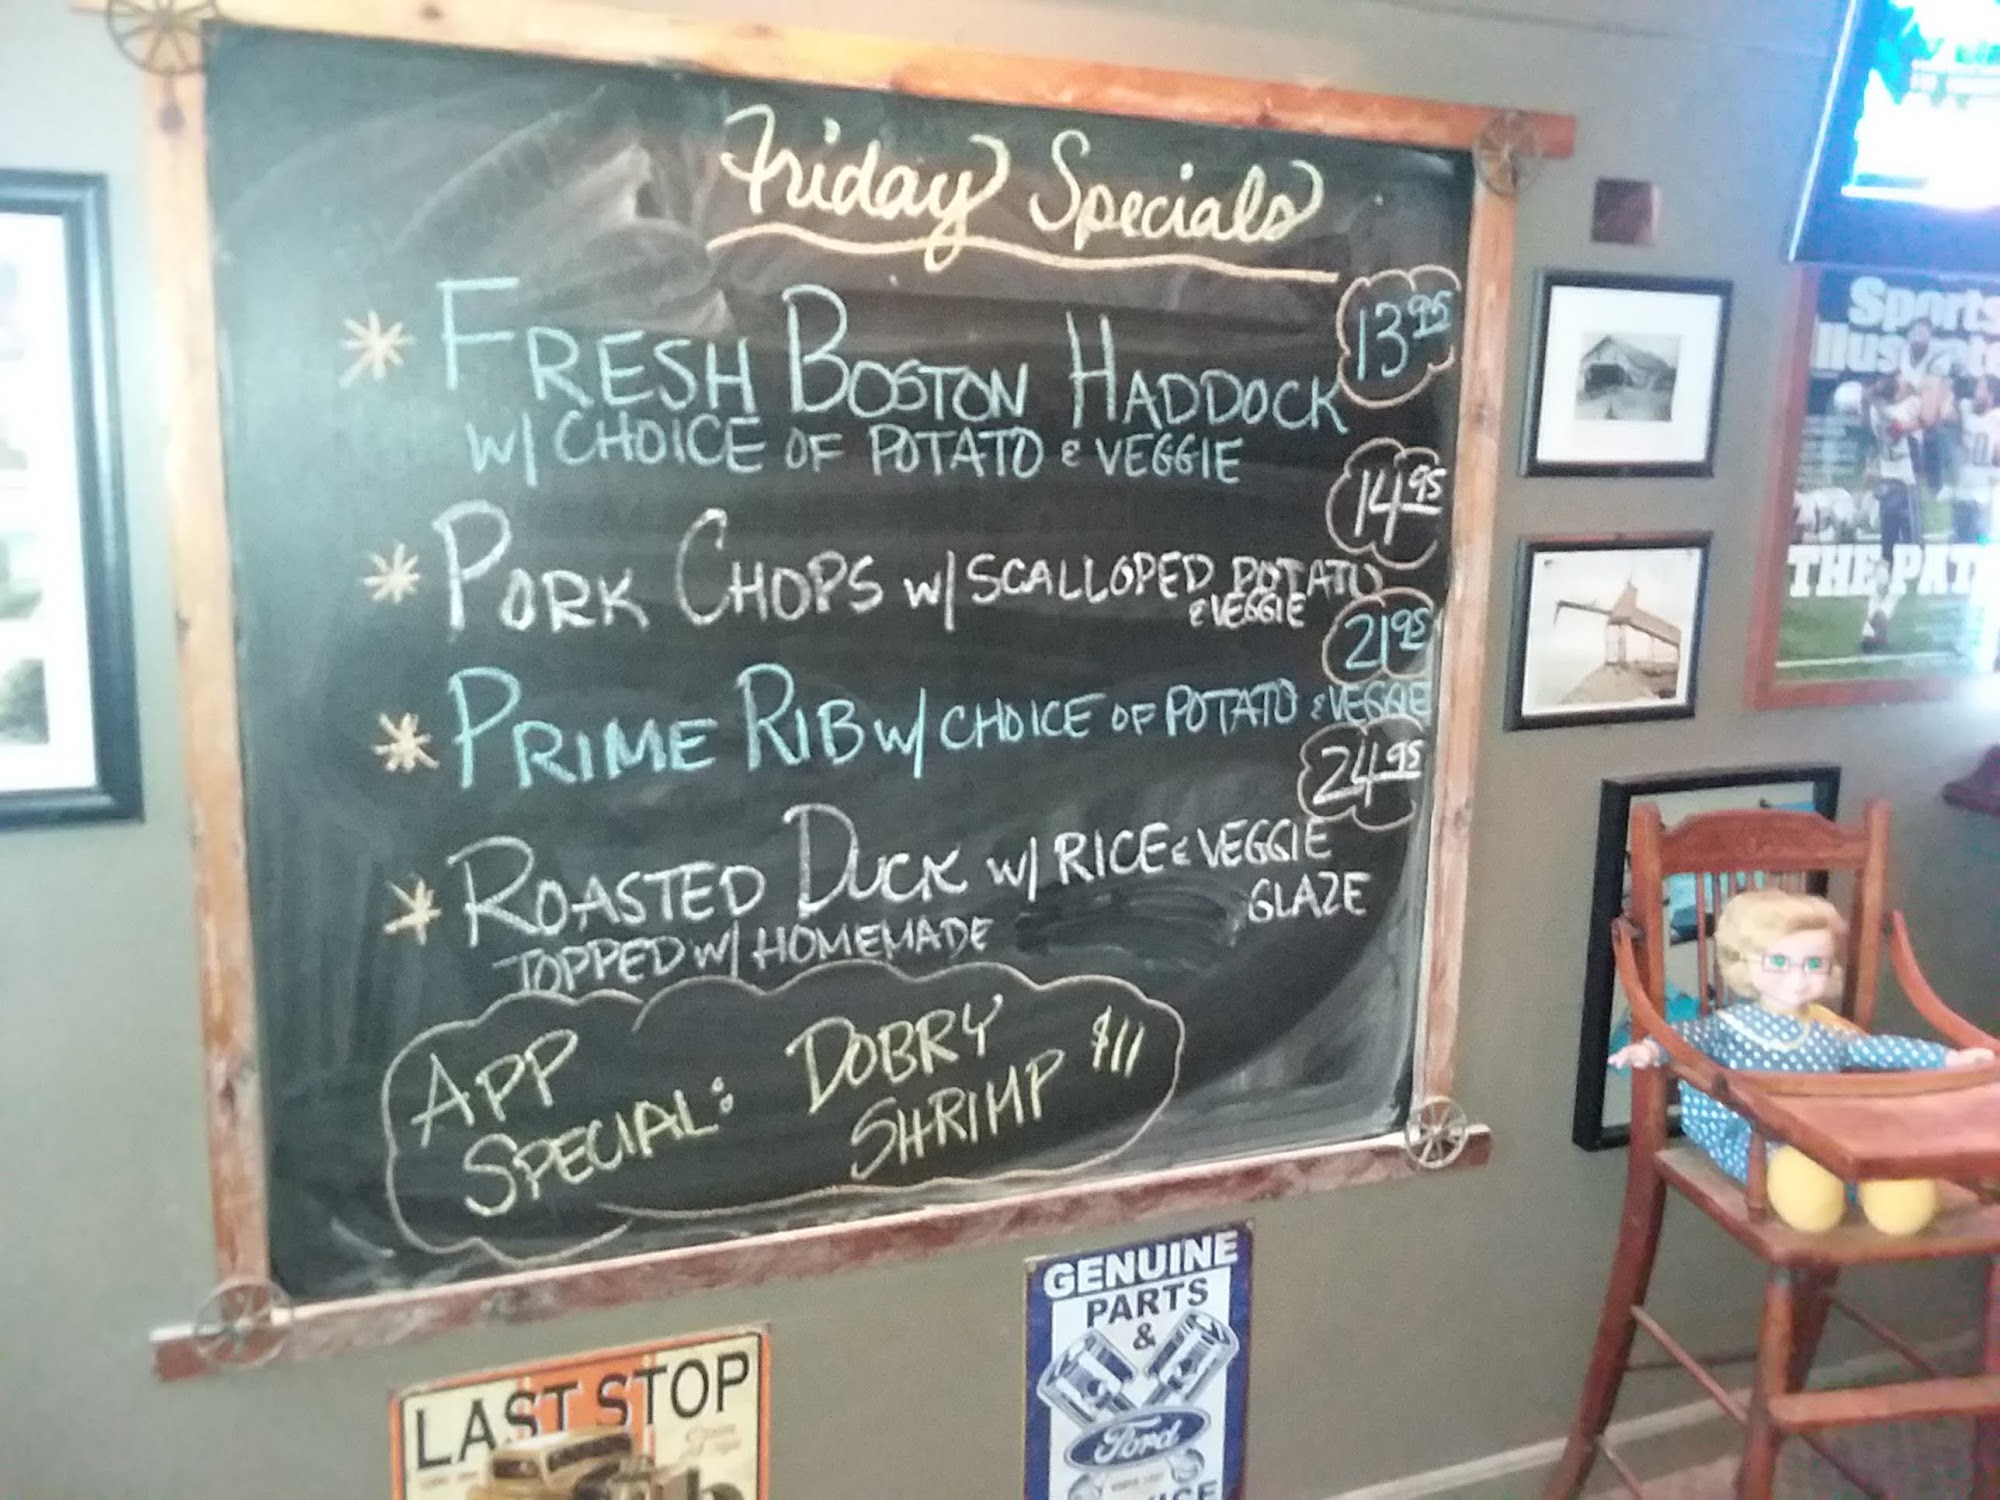 Friday Specials
* FRESH BOSTON HADDOCK 13.95
W/ CHOICE OF POTATO & VEGGIE
* PORK CHOPS W/ SCALLOPED POTATO 14.95
& VEGGIE
* PRIME RIB W/ CHOICE OF POTATO & VEGGIE 21.95
* ROASTED DUCK W/ RICE & VEGGIE 24.95
TOPPED W/ HOMEMADE GLAZE
APP SPECIAL: DOBRY SHRIMP $11
Sports
Illustrated
THE PAT
LAST STOP
GENUINE
PARTS
&
Ford